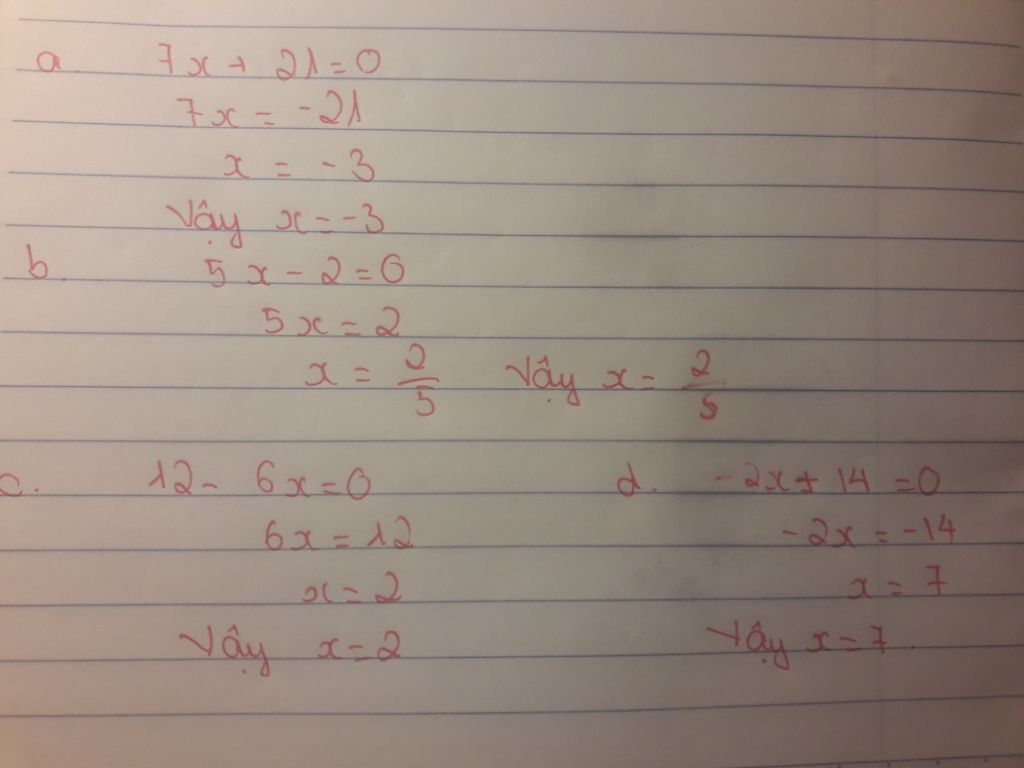 a. 7x + 21 = 0
7x = -21
x = -3
Vậy x = -3
b. 5x - 2 = 0
5x = 2
x = 2/5 Vậy x = 2/5
c. 12 - 6x = 0
6x = 12
x = 2
Vậy x = 2
d. -2x + 14 = 0
-2x = -14
x = 7
Vậy x = 7.